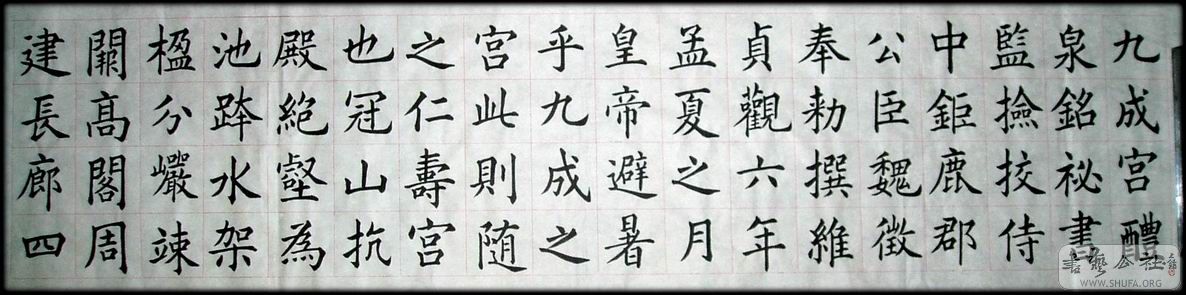 九成宮醴
泉銘祕書
監撿挍侍
中鉅鹿郡
公臣魏徵
奉勑撰維
貞觀六年
孟夏之月
皇帝避暑
乎九成之
宮此則随
之仁壽宮
也冠山抗
殿絕壑為
池跨水架
楹分巖竦
闕高閣周
建長廊四
書藝公社
WWW.SHUFA.ORG